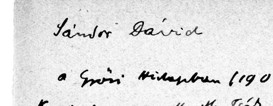 Sándor Dávid
a Győri Hirlapban (190